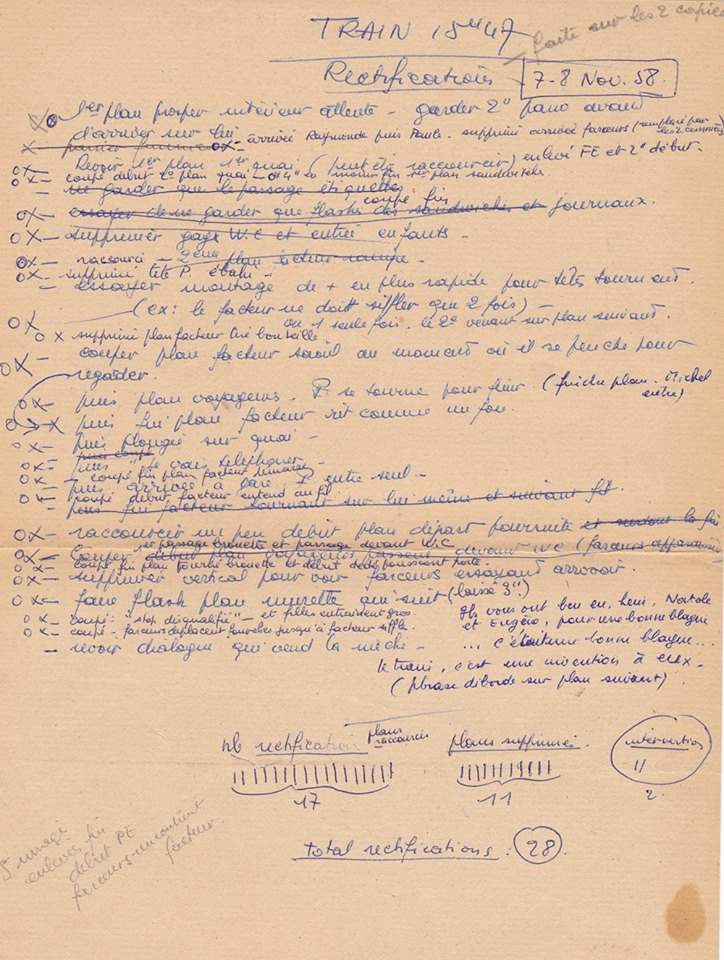 TRAIN 15H47
faite sur les 2 copies
Rectifications
7-8 Nov. 58.
1er plan prosper intérieur attente - garder 2" pano avant
d'arriver sur lui
arrivée Raymonde puis Paule. supprimé arrivée farceurs (remplacé par les 2 cousines)
Revoir 1er plan 1er quai (peut être raccourcir) enlevé FE et 2" début.
coupé début 2e plan quai
ne garder que le passage étiquettes
coupé fin
essayer de ne garder que flashes des sandwiches et journaux.
supprimer gags W.C et entrée enfants -
raccourci - 2ème plan facteur rampe -
supprimé tête P. ébahi -
essayer montage de + en plus rapide pour têtes tournant.
(ex: le facteur ne doit siffler que 2 fois) -
ou 1 seule fois. le 2e venant sur plan suivant.
supprimé plan facteur tire bouteille
couper plan facteur saoûl au moment où il se penche pour
regarder.
puis plan voyageurs. P. se tourne pour finir. (fin du plan. Michel entre)
puis fin plan facteur rit comme un fou.
puis plongée sur quai -
puis coupé
puis "je vais téléphoner -
coupé fin plan facteur
puis arrivée à gare. P. entre seul -
coupé début facteur entend au fil
puis fin facteur tournant sur lui même et suivant fil.
raccourcir un peu début plan départ tournée et surtout la fin
1er passage brouette et passage devant W.C
couper début plan voyageurs passent devant WC (farceurs apparaissent
coupé fin plan fourche brouette et début dédé poussent porte.
supprimer vertical pour voir farceurs essayant arrosoir.
faire flash plan murette qui suit (laissé 3")
coupé: "stop disqualifié" - et filles entraînent gros
coupé - farceurs déplacent fourches jusqu'à facteur siffle.
revoir dialogue qui vend la mèche -
Ils vous ont bien eu, hein, Natole
et Eugène, pour une bonne blague
... c'était une bonne blague...
le train, c'est une invention à eux -
(phrase déborde sur plan suivant)
nb rectification plans raccourcis
plans supprimés.
intervention
17
11
2.
total rectifications : 28
5 images
enlevées fin
début PE
farceurs rencontrent
facteur.